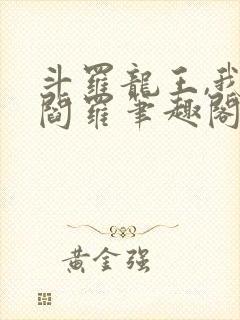 斗羅龍王,我
閻羅筆趣閣
黃金强